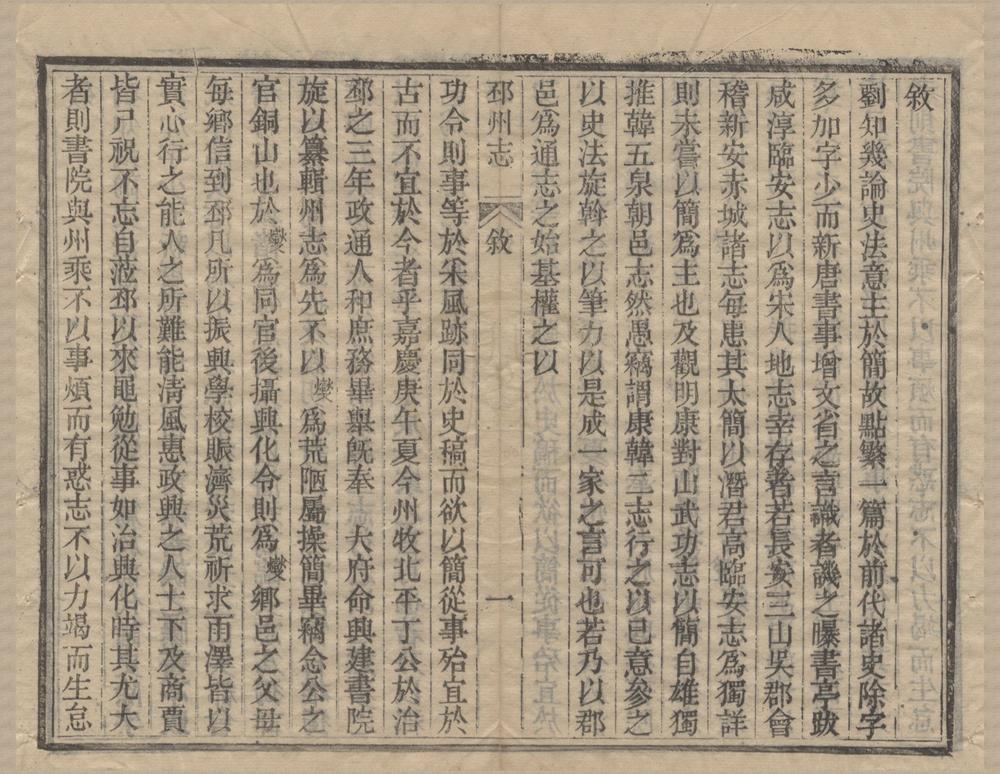 敘
劉知幾論史法意主於簡故點繁一篇於前代諸史除字
多加字少而新唐書事增文省之言識者譏之曝書亭跋
咸淳臨安志以為宋人地志幸存者若長安三山吳郡會
稽新安赤城諸志每患其太簡以潛君高臨安志為獨詳
則未嘗以簡為主也及觀明康對山武功志以簡自雄獨
推韓五泉朝邑志然愚竊謂康韓二志行之以已意參之
以史法旋斡之以筆力以是成一家之言可也若乃以郡
邑為通志之始基權之以
邳州志 敘 一
功令則事等於采風跡同於史稿而欲以簡從事殆宜於
古而不宜於今者乎嘉慶庚午夏今州牧北平丁公於治
邳之三年政通人和庶務畢舉既奉 大府命興建書院
旋以纂輯州志為先不以燮為荒陋屬操簡畢竊念公之
官銅山也於燮為同官後攝興化令則為燮鄉邑之父母
每鄉信到邳凡所以振興學校賑濟災荒祈求雨澤皆以
實心行之能人之所難能清風惠政興之人士下及商賈
皆尸祝不忘自蒞邳以來黽勉從事如治興化時其尤大
者則書院與州乘不以事煩而有惑志不以力竭而生怠